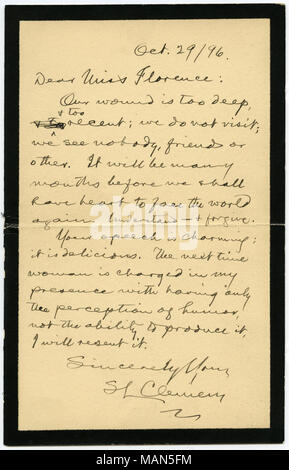 Oct. 29/96.
Dear Miss Florence:
Our wound is too deep,
too
recent; we do not visit;
we see nobody, friend or
other. It will be many
months before we shall
have heart to face the world
again. — & forgive.
Your speech is charming;
it is delicious. The next time
woman is charged in my
presence with having only
the perception of humor,
not the ability to produce it,
I will resent it.
Sincerely Yours
SL Clemens
alamy
Image ID: MAN5FM
www.alamy.com